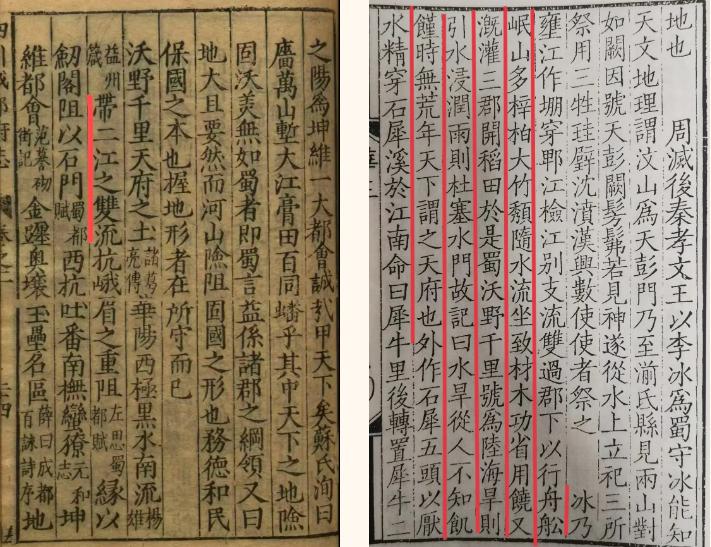 之陽為坤維一大都會誠哉甲天下矣蘇氏洵曰
廣萬山塹大江膏田百同蟠乎其中天下之地險
固沃美無如蜀者即蜀言益係諸郡之綱領又曰
地大且要然而河山險阻固國之形也務德和民
保國之本也握地形者在所守而已
沃野千里天府之土諸葛亮傳華陽西極黑水南流楊雄
益州箴帶二江之雙流抗峨眉之重阻左思蜀都賦緣以
劒閣阻以石門蜀都賦西抗吐番南撫蠻獠元和志坤
維都會記金墀奧壤玉壘名區薛曰成都百詠詩序地
四川成都府志
地也 周滅後秦孝文王以李冰為蜀守冰能知
天文地理謂汶山為天彭門乃至湔氐縣見兩山對
如闕因號天彭闕髣髴若見神遂從水上立祀三所
祭用三牲珪璧沈濆漢興數使使者祭之 冰乃
壅江作堋穿郫江檢江别支流雙過郡下以行舟船
岷山多梓柏大竹頹隨水流坐致材木功省用饒又
溉灌三郡開稻田於是蜀沃野千里號為陸海旱則
引水浸潤雨則杜塞水門故記曰水旱從人不知飢
饉時無荒年天下謂之天府也外作石犀五頭以厭
水精穿石犀溪於江南命曰犀牛里後轉置犀牛二